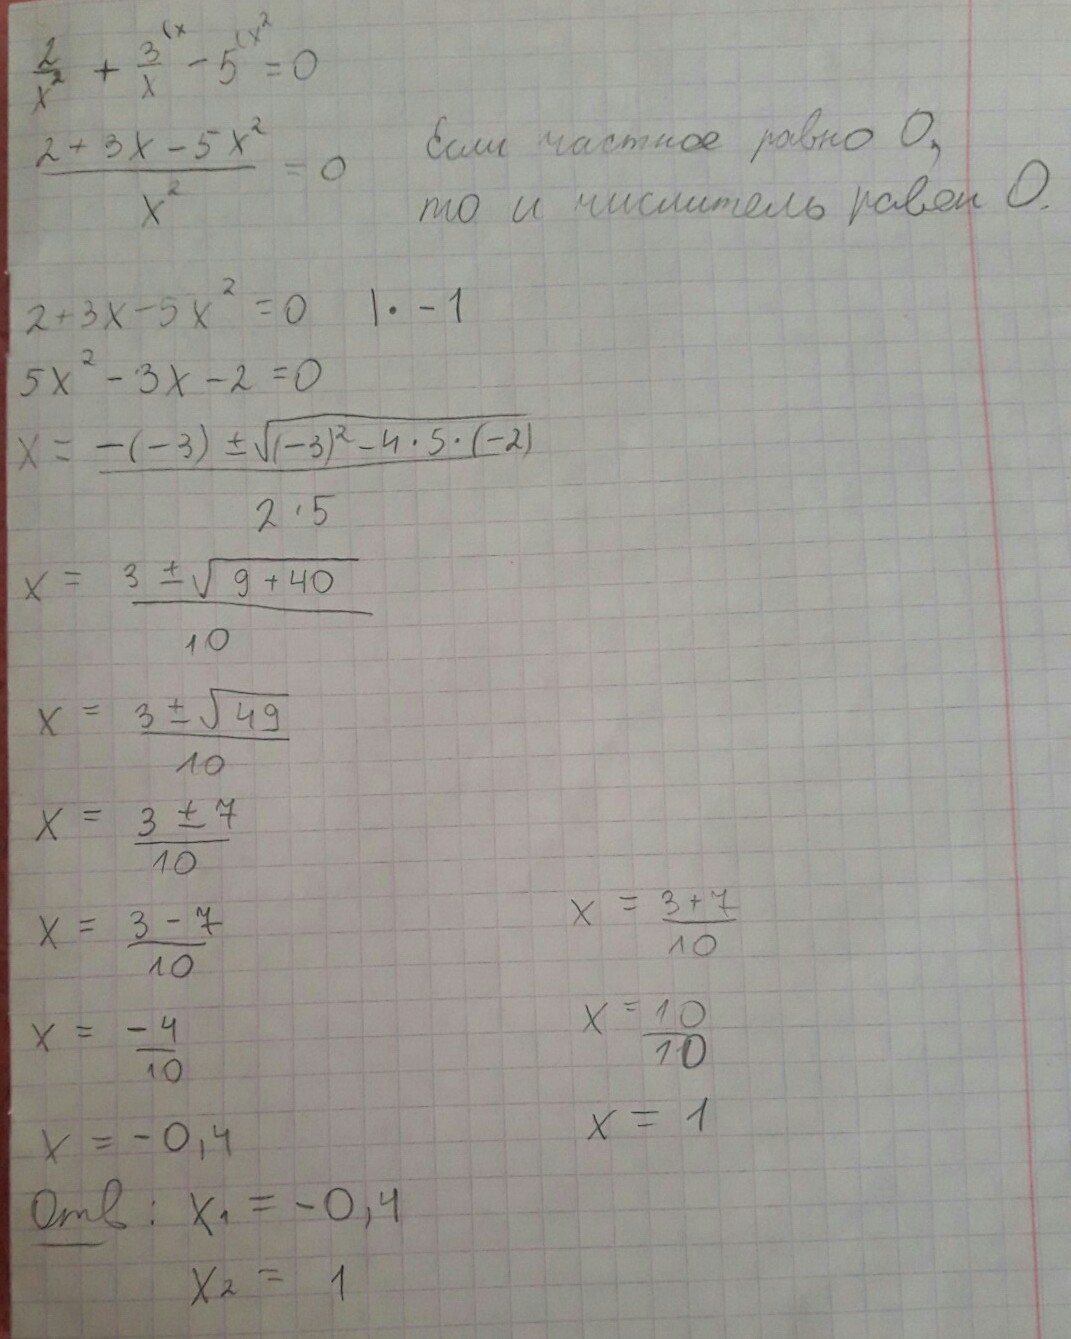 2/x² + 3⁽ˣ/x - 5⁽ˣ² = 0
2 + 3x - 5x² / x² = 0 Если частное равно 0,
то и числитель равен 0.
2 + 3x - 5x² = 0 | · -1
5x² - 3x - 2 = 0
x = -(-3) ± √(-3)² - 4 · 5 · (-2) / 2 · 5
x = 3 ± √9 + 40 / 10
x = 3 ± √49 / 10
x = 3 ± 7 / 10
x = 3 - 7 / 10 x = 3 + 7 / 10
x = -4 / 10 x = 10 / 10
x = -0,4 x = 1
Отв: x₁ = -0,4
x₂ = 1